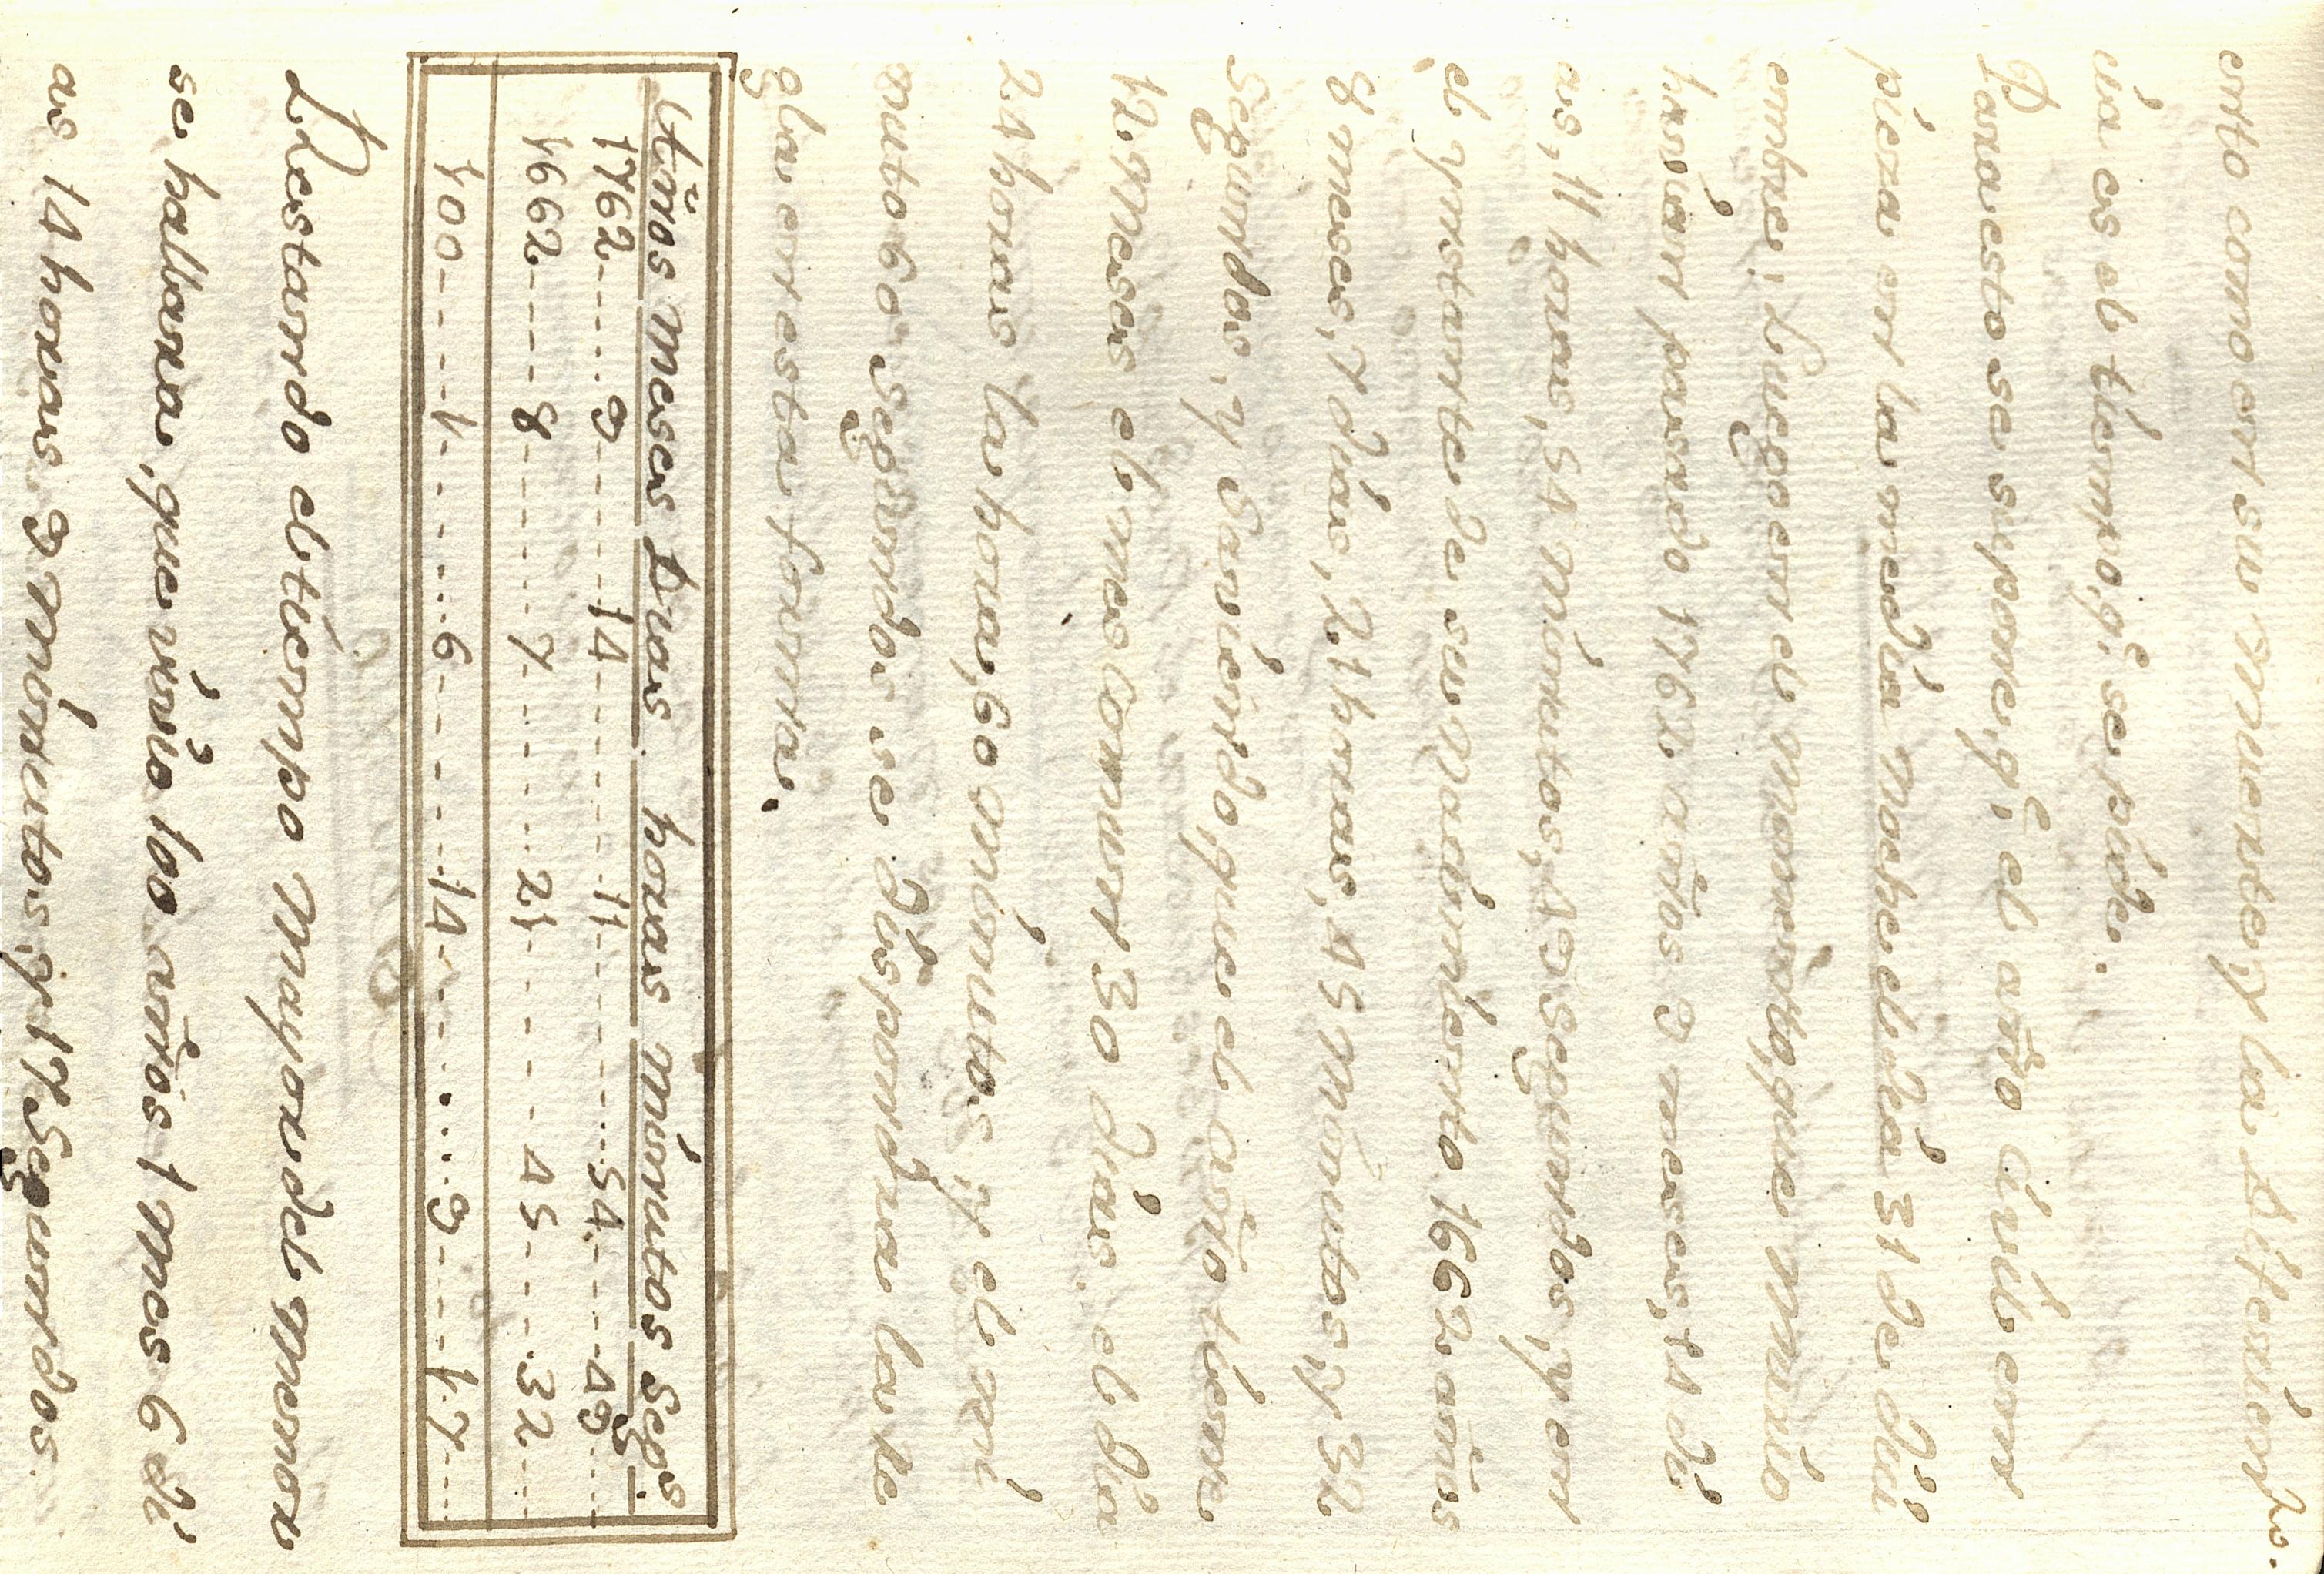 ento como en su muerte y la Diferen
cia es el tiempo, q.̃ se pide.
Para esto se supone, q.̃ el año civil em
pieza en la media noche el dia 31 de Dici
embre: Luego en el momento, que murio
havian pasado 1762 años 9 meses, 14 di
as, 11 horas, 54 minutos, 49 segundos, y en
el ynstante de su nacimiento 1662 años
8 meses, 7 dias, 21 horas, 45 minutos, y 32
segundos, y saviendo, que el año tiene
12 meses el mes comun 30 dias. el dia
24 horas la hora, 60 minutos y el mi
nuto 60 segundos se dispondra la re
gla en esta forma.
Años meses Dias. horas minutos Seg.s
1762......9......14......11......54....49....
1662......8......7......21......45....32....
100......1......6......14......9......17....
Restando el tiempo mayor del menor
se hallara, que vivio 100 años 1 mes 6 di
as 14 horas 9 minutos, y 17 Segundos.